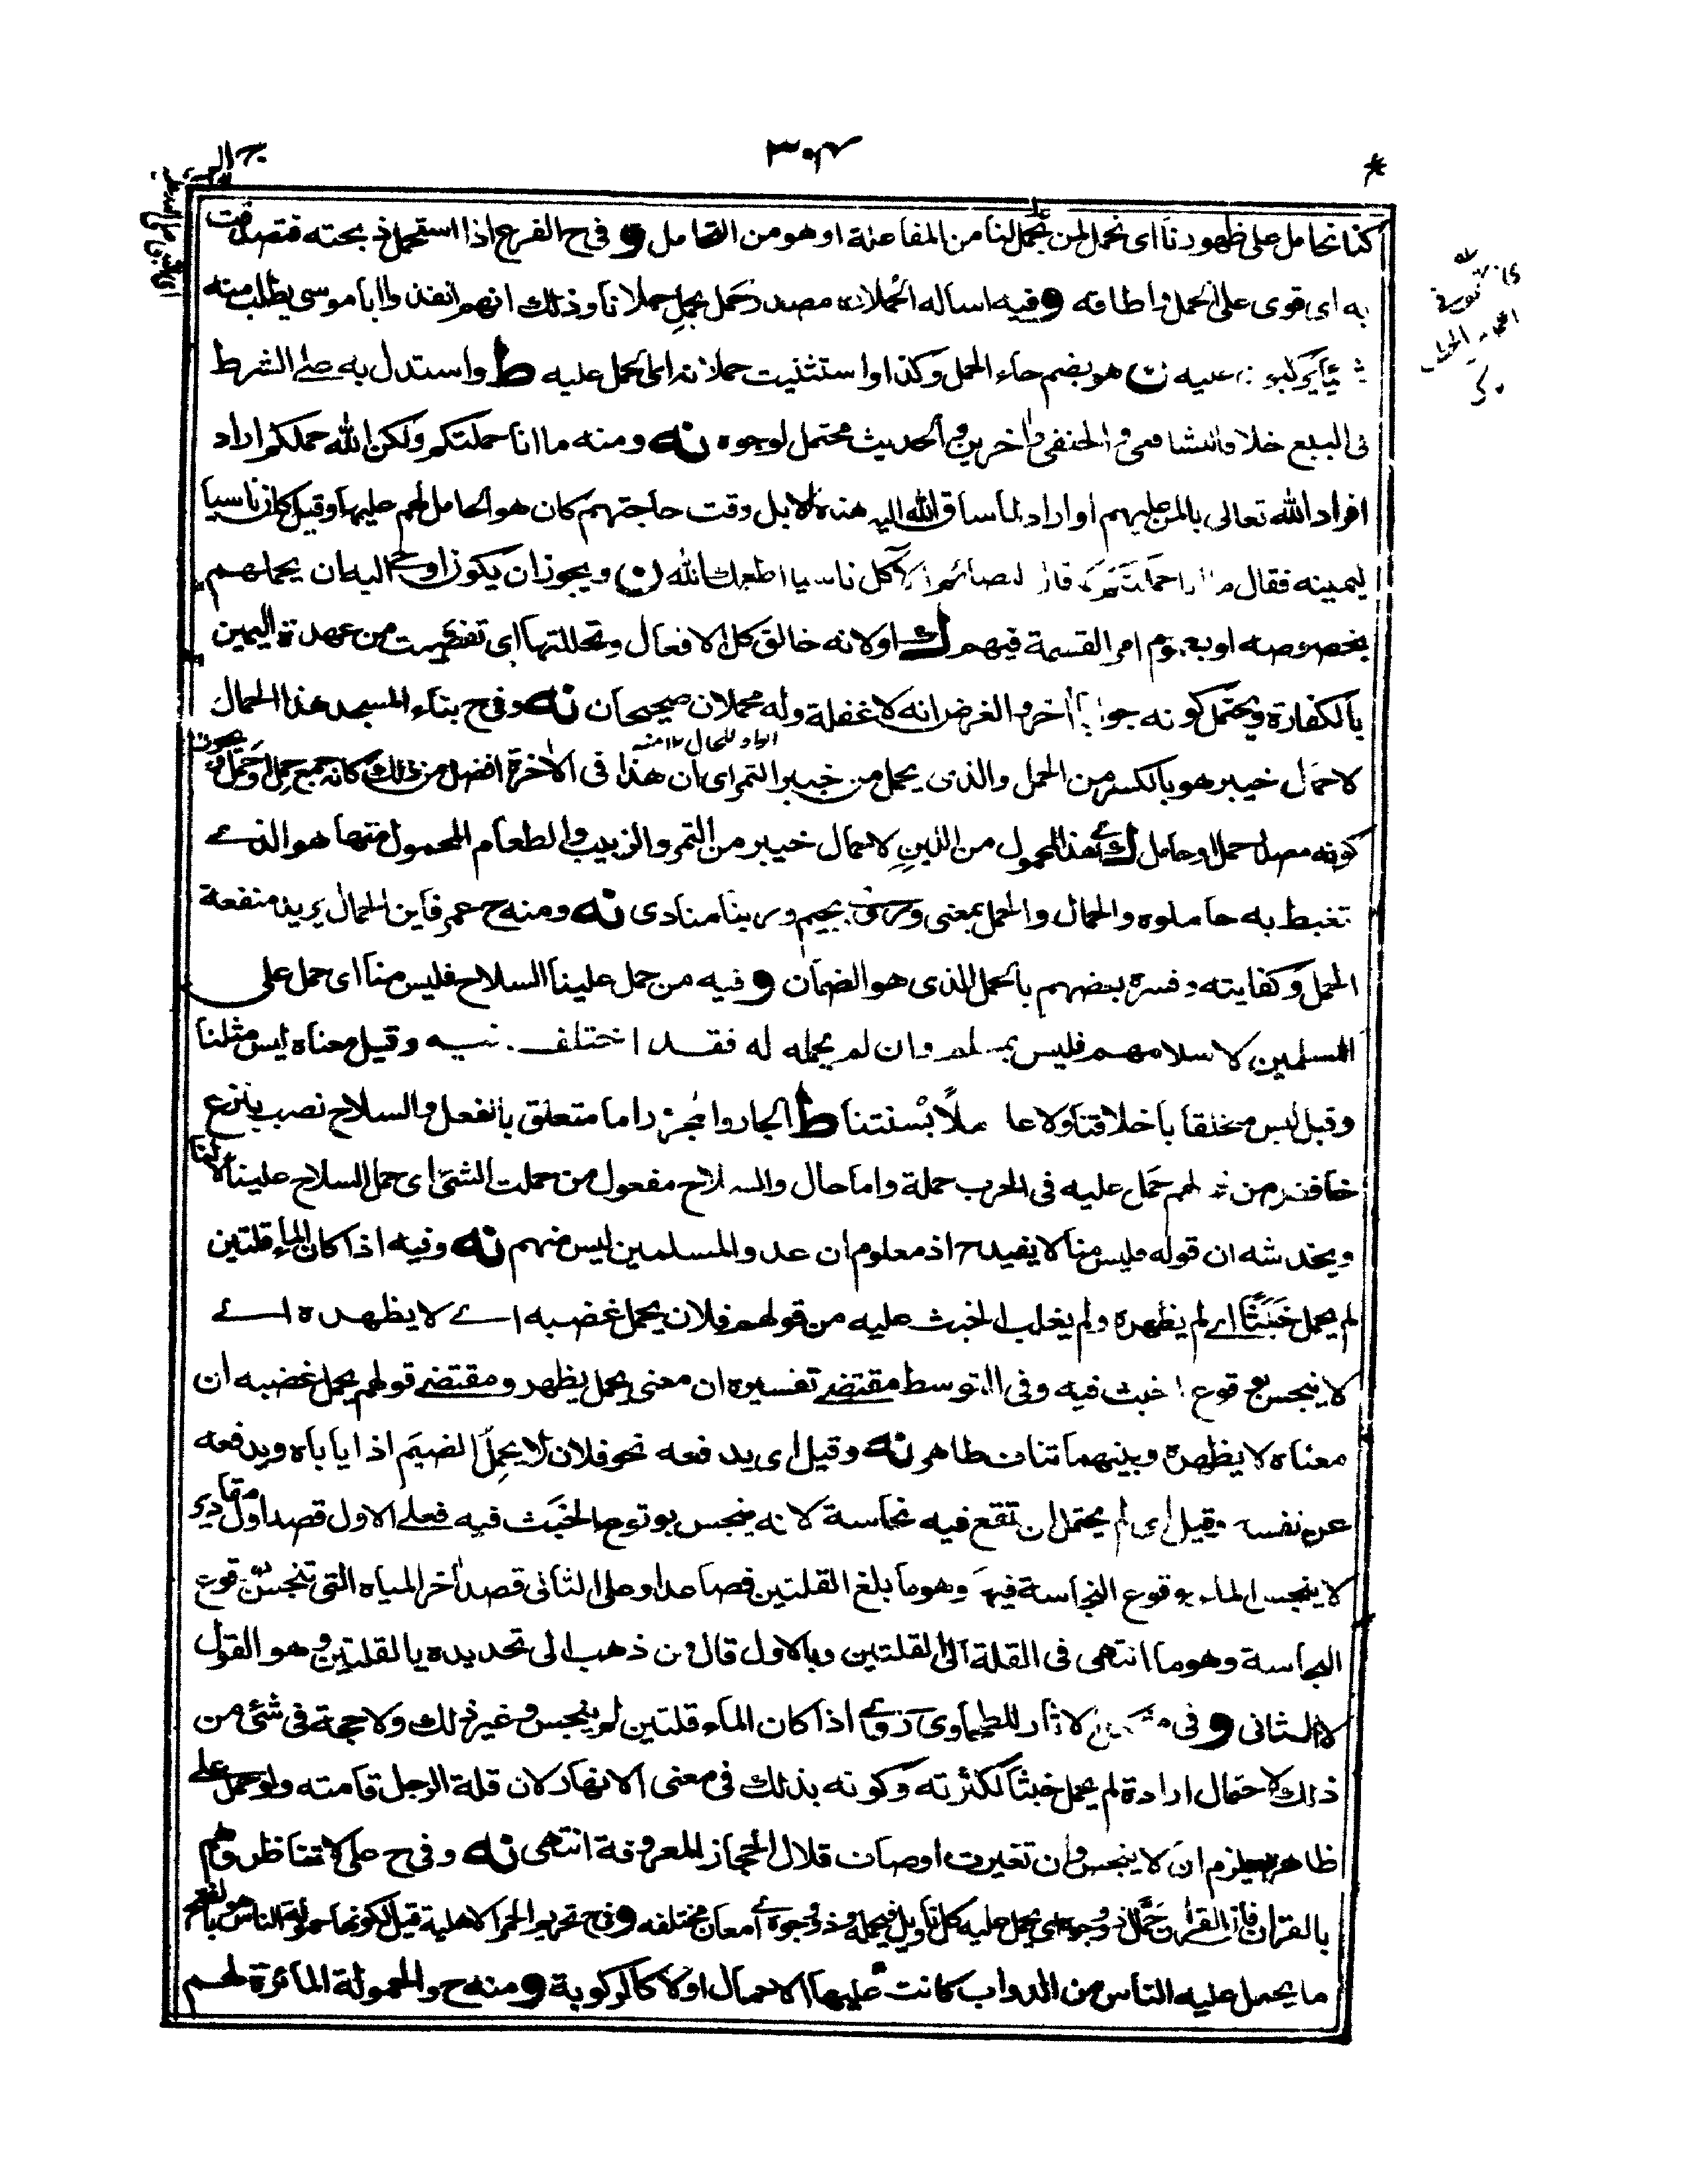 ٣٠٤
كنا نحامل على ظهورنا اى نحمل لمن يحمل لنا من المفاعلة او هو من التحامل و فى ح الفرع اذا استحمل ذبحته فتصدقت
به اى قوى على الحمل واطاقه و فيه اساله الحملان مصدر حمل يحمل حملانا وذلك انهم انفذوا ابا موسى يطلب منه
شيئا يركبون عليه ن هو بضم حاء الحمل وكذا واستثنيت حملانه اى الحمل عليه ط واستدل به على الشرط
فى البيع خلافا للشافعى والحنفى واخرين والحديث محتمل لوجوه نه ومنه ما انا حملتكم ولكن الله حملكم اراد
افراد الله تعالى بالمن عليهم او اراد لما ساق الله اليه هذه الابل وقت حاجتهم كان هو الحامل لهم عليها وقيل كان ناسيا
ليمينه فقال ما انا حملتكم كما قال للصائم الآكل ناسيا اطعمك الله ن ويجوز ان يكون اوحى اليه ان يحملهم
بخصوصه او بعموم امر القسمة فيهم ك او لانه خالق كل الافعال وتحللتها اى تفصيت من عهدة اليمين
بالكفارة ويحتمل كونه جوابا اخر والغرض انه لا غفلة وله محملان صحيحان نه وفى ح بناء المسجد هذا الحمال
الواو للحال ١٢ منه
لا حمال خيبر هو بالكسر من الحمل والذى يحمل من خيبر التمر اى ان هذا فى الاخرة افضل من ذلك كانه جمع حمل او حمل ويجوز
كونه مصدر حمل او حامل ك اى هذا المحمول من اللبن لا حمال خيبر من التمر والزبيب والطعام المحمول منها هو الذى
تغبط به حاملوه والحمال والحمل بمعنى وروى بجيم وربنا منادى نه ومنه ح عمر فاين الحمال يريد منفعة
الحمل وكفايته وفسره بعضهم بالحمل الذى هو الضمان و فيه من حمل علينا السلاح فليس منا اى حمل على
المسلمين لاسلامهم فليس بمسلم وان لم يحمله له فقد اختلف فيه وقيل معناه ليس مثلنا
وقيل ليس متخلقا باخلاقنا ولا عاملا بسنتنا ط الجار والمجرور اما متعلق بالفعل والسلاح نصب بنزع
خافضه من حمل عليه فى الحرب حملة واما حال والسلاح مفعول من حملت الشئ اى حمل السلاح علينا لا لنا
ويخدشه ان قوله فليس منا لا يفيد ح اذ معلوم ان عدو المسلمين ليس منهم نه وفيه اذا كان الماء قلتين
لم يحمل خبثا اى لم يظهره ولم يغلب الخبث عليه من قولهم فلان يحمل غضبه اى لا يظهره اى
لا ينجس بوقوع الخبث فيه وفى التوسط مقتضى تفسيره ان معنى يحمل يظهر ومقتضى قولهم يحمل غضبه ان
معناه لا يظهره وبينهما تناف ظاهر نه وقيل اى يدفعه نحو فلان لا يحمل الضيم اذا ياباه ويدفعه
عن نفسه وقيل اى لم يحتمل ان تقع فيه نجاسة لانه ينجس بوقوع الخبث فيه فعلى الاول قصد اول مقادير
لا ينجس الماء بوقوع النجاسة فيه وهو ما بلغ القلتين فصاعدا وعلى الثانى قصد آخر المياه التى تنجس بوقوع
النجاسة وهو ما انتهى فى القلة الى القلتين وبالاول قال من ذهب الى تحديده بالقلتين وهو القول
لا الثانى و فى مشكل الاثار للطحاوى روى اذا كان الماء قلتين لم ينجس وغير ذلك ولا حجة فى شئ من
ذلك لاحتمال ارادة لم يحمل خبثا لكثرته وكونه بذلك فى معنى الانهار لان قلة الرجل قامته ولو حمل على
ظاهره يلزم ان لا ينجس وان تغيرت اوصاف قلال الحجاز المعروفة انتهى نه وفى ح على لا تناظروهم
بالقران فان القران حمال ذو وجوه اى يحمل عليه كل تاويل فيحمله وذو وجوه اى معان مختلفه و فى ح تحريم الحمر الاهلية قيل لكونها حمولة الناس هو بالفتح
ما يحمل عليه الناس من الدواب كانت عليها الاحمال او لا كالركوبة و منه ح والحمولة المائرة لهم